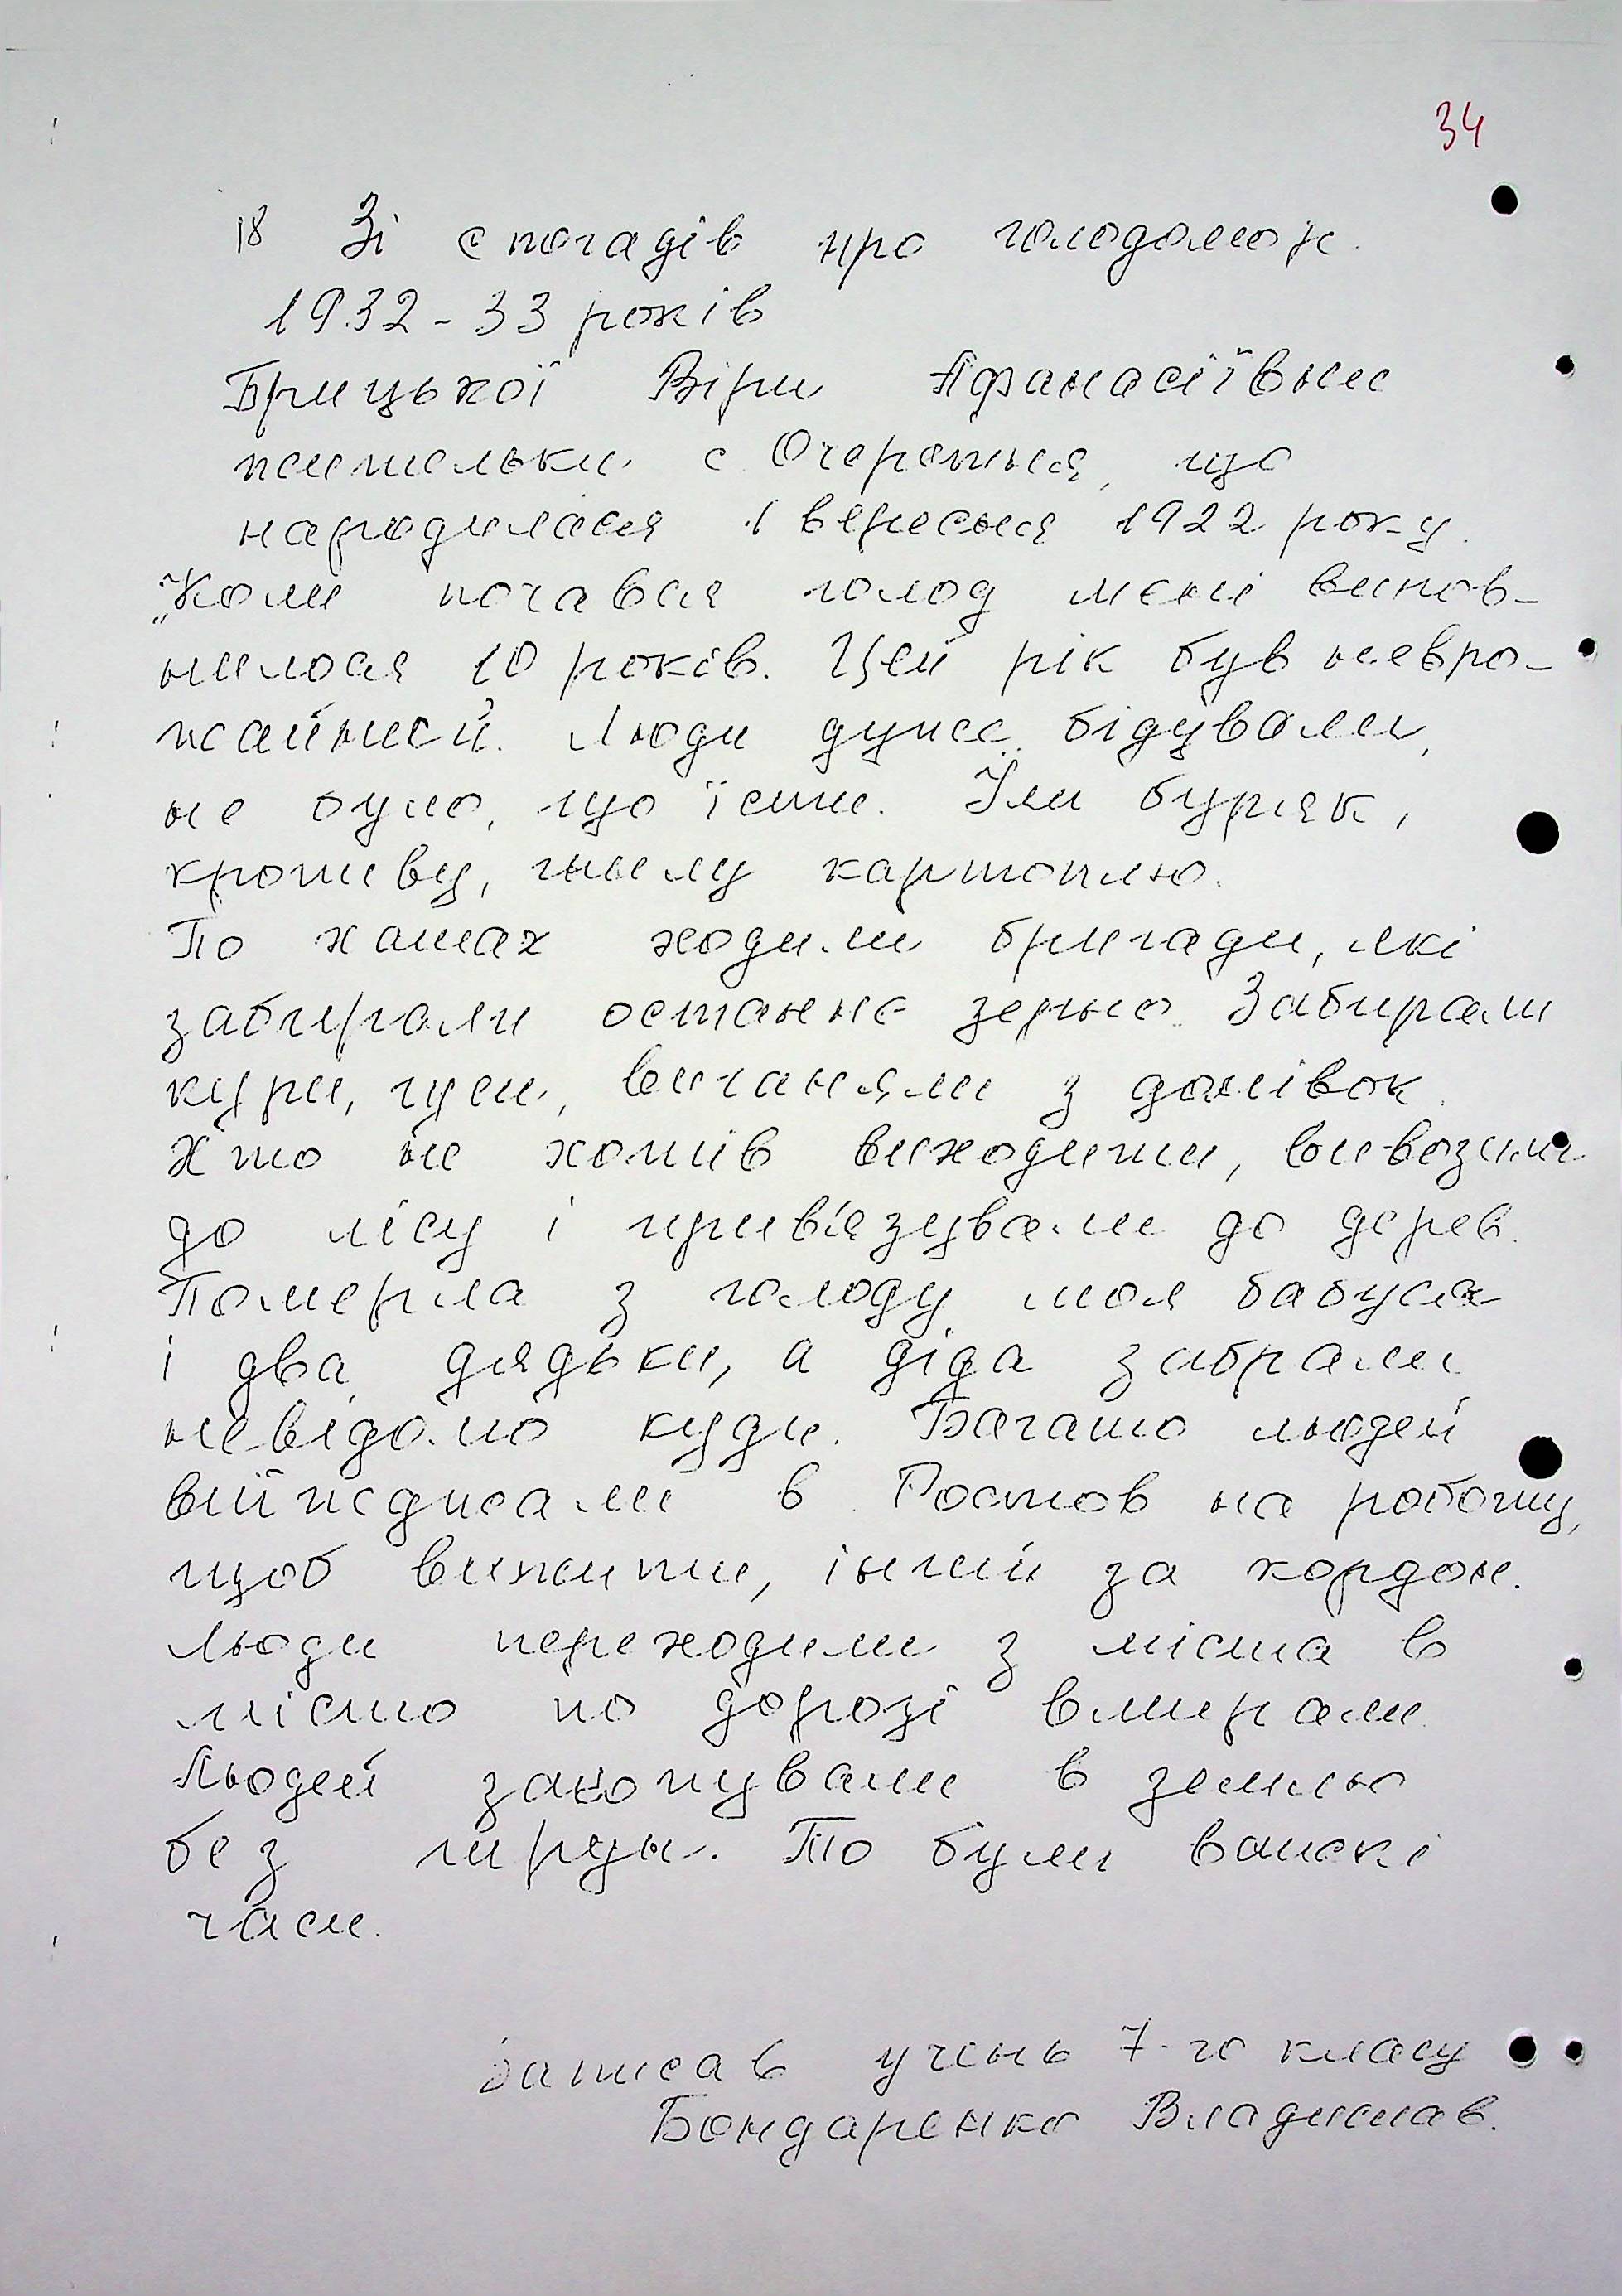 34
18 Зі спогадів про голодомор
1932-33 років
Брицької Віри Афанасіївни
жительки с. Очеретня, що
народилася 1 вересня 1922 року.
"Коли почався голод мені випов-
нилося 10 років. Цей рік був невро-
жайний. Люди дуже бідували,
не було, що їсти. Їли буряк,
кропиву, гнилу картоплю.
По хатах ходили бригади, які
забирали останнє зерно. Забирали
кури, гуси, виганяли з домівок.
Хто не хотів виходити, вивозили
до лісу і прив'язували до дерев.
Померла з голоду моя бабуся
і два дядьки, а діда забрали
невідомо куди. Багато людей
виїжджали в Ростов на роботу,
щоб вижити, інший за кордон.
Люди переходили з міста в
місто по дорозі вмирали.
Людей закопували в землю
без труни. То були важкі
часи.
Записав учень 7-го класу
Бондаренко Владислав.